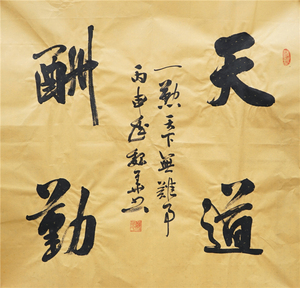 天道
酬勤
一勤天下無難事
丙申